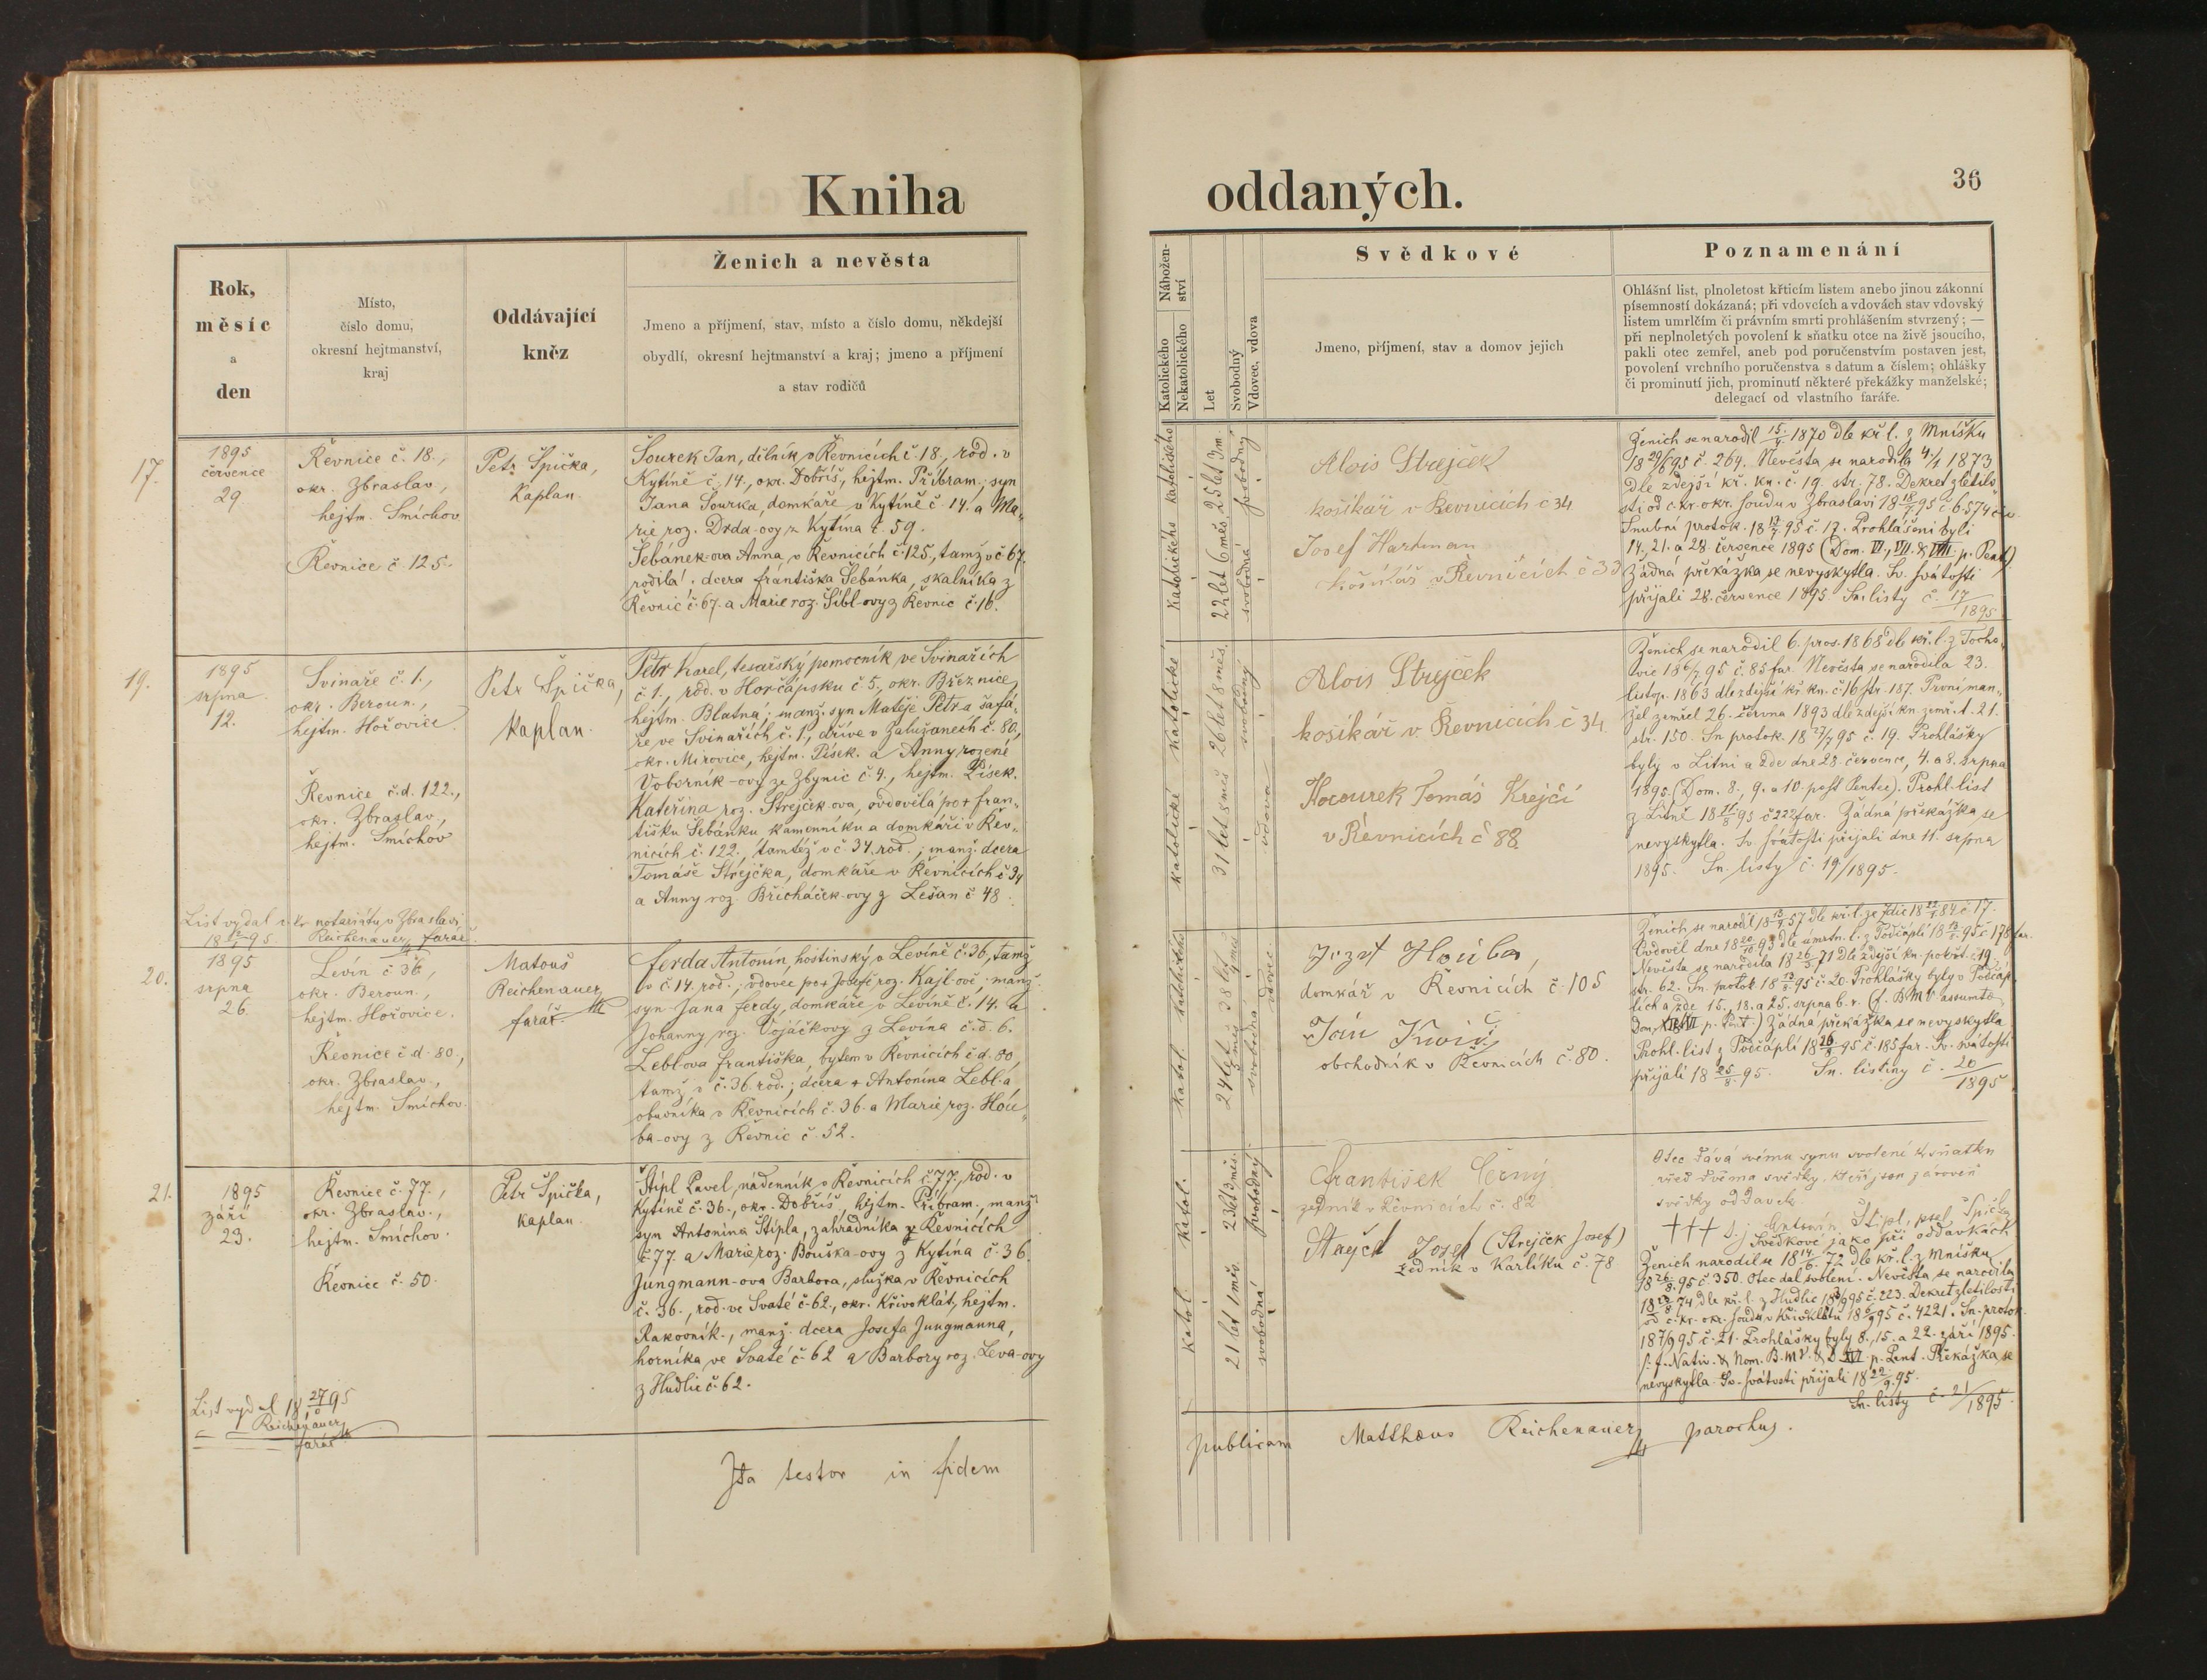 Kniha
oddaných.
36
Rok,
měsíc
a
den
Místo,
číslo domu,
okresní hejtmanství,
kraj
Oddávající
kněz
Ženich a nevěsta
Jmeno a příjmení, stav, místo a číslo domu, někdejší
obydlí, okresní hejtmanství a kraj; jmeno a příjmení
a stav rodičů
Nábožen-
ství
Katolického
Nekatolického
Let
Svobodný
Vdovec, vdova
Svědkové
Jmeno, příjmení, stav a domov jejich
Poznamenání
Ohlášní list, plnoletost křticím listem anebo jinou zákonní
písemností dokázaná; při vdovcích a vdovách stav vdovský
listem umrlčím či právním smrti prohlášením stvrzený; —
při neplnoletých povolení k sňatku otce na živě jsoucího,
pakli otec zemřel, aneb pod poručenstvím postaven jest,
povolení vrchního poručenstva s datum a číslem; ohlášky
či prominutí jich, prominutí některé překážky manželské;
delegací od vlastního faráře.
17.
1895
července
29
Řevnice č. 18.,
okr. Zbraslav,
hejtm. Smíchov
Řevnice č. 125.
Petr Špička,
Kaplan.
Šourek Jan, dělník v Řevnicích č. 18., rod. v
Kytíně č. 14., okr. Dobříš, hejtm. Příbram; syn
Jana Šourka, domkáře v Kytíně č. 14. a Ma„
rie roz. Drda-ovy z Kytína č. 59.
Šebánek-ova Anna, v Řevnicích č. 125, tamž v č 67.
rodilá; dcera františka Šebánka, skalníka z
Řevnic č. 67. a Marie roz. Šibl-ovy z Řevnic č. 16.
katolického katolického
22 let 6 měs. 25 let 3 m.
svobodná svobodný
Alois Strejček
košíkář v Řevnicích č 34
Josef Hartman
košíkář v Řevnicích č 33
Ženich se narodil 15/4 1870 dle kř. l. z Mníšku
18 29/6 95 č. 264. Nevěsta se narodila 4/1 1873
dle zdejší kř. kn. č. 19. str. 78. Dekret zletilo„
sti od c. kr. okr. soudu v Zbraslavi 18 18/7 95 č 6574
Snubní protok. 95 č. 17. Prohlášeni byli
14., 21. a 28. července 1895 (Dom. VI., VII. & VIII. p. Pent)
Žádná překážka se nevyskytla. Sv. svátosti
přijali 28. července 1895. Sn. listy č. 17/1895
19.
1895
srpna
12.
Svinaře č. 1.,
okr. Beroun.,
hejtm. Hořovice.
Řevnice č. d. 122.,
okr. Zbraslav.,
hejtm. Smíchov
Petr Špička,
kaplan.
Petr Karel, tesařský pomocník, ve Svinařích
č 1., rod. v Horčápsku č 5., okr. Březnice,
hejtm. Blatná; manž. syn Matěje Petra šafá„
ře ve Svinařích č. 1, dříve v Zalužanech č. 80.,
okr. Mirovice, hejtm. Písek. a Anny rozené
Voborník-ovy ze Zbynic č. 4., hejtm. Písek.
Kateřina roz. Strejček-ova, ovdovělá po † fran„
tišku Šebánku kamenníku a domkáři v Řev„
nicích č. 122., tamtéž v č. 34. rod.; manž. dcera
Tomáše Strejčka, domkáře v Řevnicích č 34
a Anny roz. Břicháček-ovy z Lešan č 48.
List vydal c. kr. notariátu v Zbraslavi
Reichenauer, farář.
katolické katolické
31 let 8 měs. 26 let 8 měs.
vdova svobodný
Alois Strejček
košíkář v. Řevnicích č 34
Kocourek Tomáš Krejčí
v Řevnicích č 88.
Ženich se narodil 6. pros. 1868 dle kř. l. z Tocho„
vic 18 6/7 95 č. 85 far. Nevěsta se narodila 23.
listop. 1863 dle zdejší kř. kn. č 16 str. 187. První man„
žel zemřel 26. června 1893 dle zdejší kn. zemř. t. 21.
str. 150. Sn protok. 18 27/7 95 č. 19. Prohlášky
byly v Litni a zde dne 28. července, 4. a 8. srpna
1895. (Dom. 8., 9. a 10. post Pentec). Prohl. list
z Litně 18 11/8 95 č 222 far. Žádná překážka se
nevyskytla. Sv. svátosti přijali dne 11. srpna
1895. Sn. listy č. 19/1895.
20.
1895
srpna
26
Levín č 36,
okr. Beroun.,
hejtm. Hořovice.
Řevnice č. d. 80.,
okr. Zbraslav.,
hejtm. Smíchov.
Matouš
Reichenauer
farář.
ferda Antonín, hostinský v Levíně č. 36, tamž
v č. 14. rod.; vdovec po † Josefě roz. Kajl-ově; manž.
syn Jana ferdy, domkáře v Levíně č. 14. a
Johanny roz. Vojáčkovy z Levína č. d. 6.
Lebl-ova františka, bytem v Řevnicích č d. 80,
tamž v č. 36. rod.; dcera † Antonína Lebl-a
obuvníka v Řevnicích č. 36. a Marie roz. Hou„
ba-ovy z Řevnic č. 52.
katol. katolického
24 let 3 měs. 38 let
svobodná vdovec
Jozef Houba,
domkář v Řevnicích č. 105
Jan
obchodník v Řevnicích č. 80.
Ženich se narodil 57 dle kř. l. ze Zdic 84 č 17.
Ovdověl dne 93 dle úmrtn. l. z Počápl 95 č 178 far.
Nevěsta se narodila 71 dle zdejší kn. pokřt. č 19.
str. 62. Sn. protok. 95 č. 20. Prohlášky byly v Počáp„
lích a zde 15., 18. a 25. srpna b. r. (f. B. M V assumtæ
Dom. p. Pent.) Žádná překážka se nevyskytla
Prohl. list z Počápl 95 č. 185 far. Sv. svátosti
přijali 18 25/8 95. Sn. listiny č. 20/1895
21.
1895
září
23.
Řevnice č. 77.,
okr. Zbraslav.,
hejtm. Smíchov.
Řevnice č. 50.
Petr Špička,
kaplan.
Štípl Pavel, nádenník v Řevnicích č. 77., rod. v
Kytíně č. 36., okr. Dobříš, hejtm. Příbram. manž.
syn Antonína Štípla, zahradníka v Řevnicích
č 77. a Marie roz. Bouška-ovy z Kytína č. 36.
Jungmann-ova Barbora, služka v Řevnicích
č. 36., rod. ve Svaté č. 62., okr. Křivoklát, hejtm.
Rakovník., manž. dcera Josefa Jungmanna,
horníka ve Svaté č. 62 a Barbory roz. Leva-ovy
z Hudlic č. 62.
List vydal 95
Reichenauer
farář
katol. katol.
21 let 1 měs. 23 let 3 měs.
svobodná svobodný
František Černý
zedník v Řevnicích č. 82
Josef (Strejček Josef)
zedník v Karlíku č. 78
Otec dává svému synu svolení k sňatku
před dvěma svědky, kteří jsou zároveň
svědky oddavek.
††† Antonín Štípl, psal Špička
Svědkové jako při oddavkách
Ženich narodil se 18 14/6 72 dle kř. l. z Mníšku
95 č. 350. Otec dal svolení. Nevěsta se narodila
74 dle kř. l. z Hudlic 95 č. 223. Dekret zletilosti
od c. kr. okr. soudu v Křivoklátu 95 č. 4221. Sn. protok.
18 7/9 95 č. 21. Prohlášky byly 8., 15. a 22. září 1895.
Nativ. & Nom. B. M V. & D. XVI. p. Pent. Překážka se
nevyskytla. Sv. svátosti přijali 18 22/9 95.
Sn. listy č. 21/1895.
Ita testor in fidem
publicam Matthæus Reichenauer parochus.